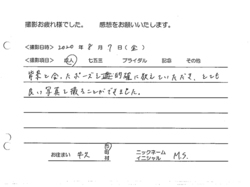 撮影お疲れ様でした。 感想をお願いいたします。
<撮影日時> 2020年 8月 7日(金)
<撮影項目> 成人 七五三 ブライダル 記念 その他
背景と合ったポーズを的確に教えていただき、とても
良い写真を撮ることができました。
お住まい 市 町 村 ニックネーム イニシャル M.S.